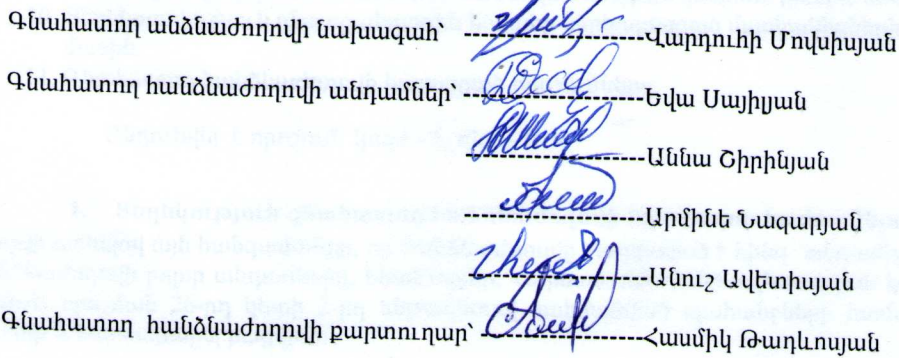 Գնահատող անձնաժողովի նախագահ՝ -----------------------Վարդուհի Մովսիսյան
Գնահատող հանձնաժողովի անդամներ -----------------------Եվա Սայիյան
-----------------------Աննա Շիրինյան
-----------------------Արմինե Նազարյան
-----------------------Անուշ Ավետիսյան
Գնահատող հանձնաժողովի քարտուղար՝ -----------------------Հասմիկ Թադևոսյան